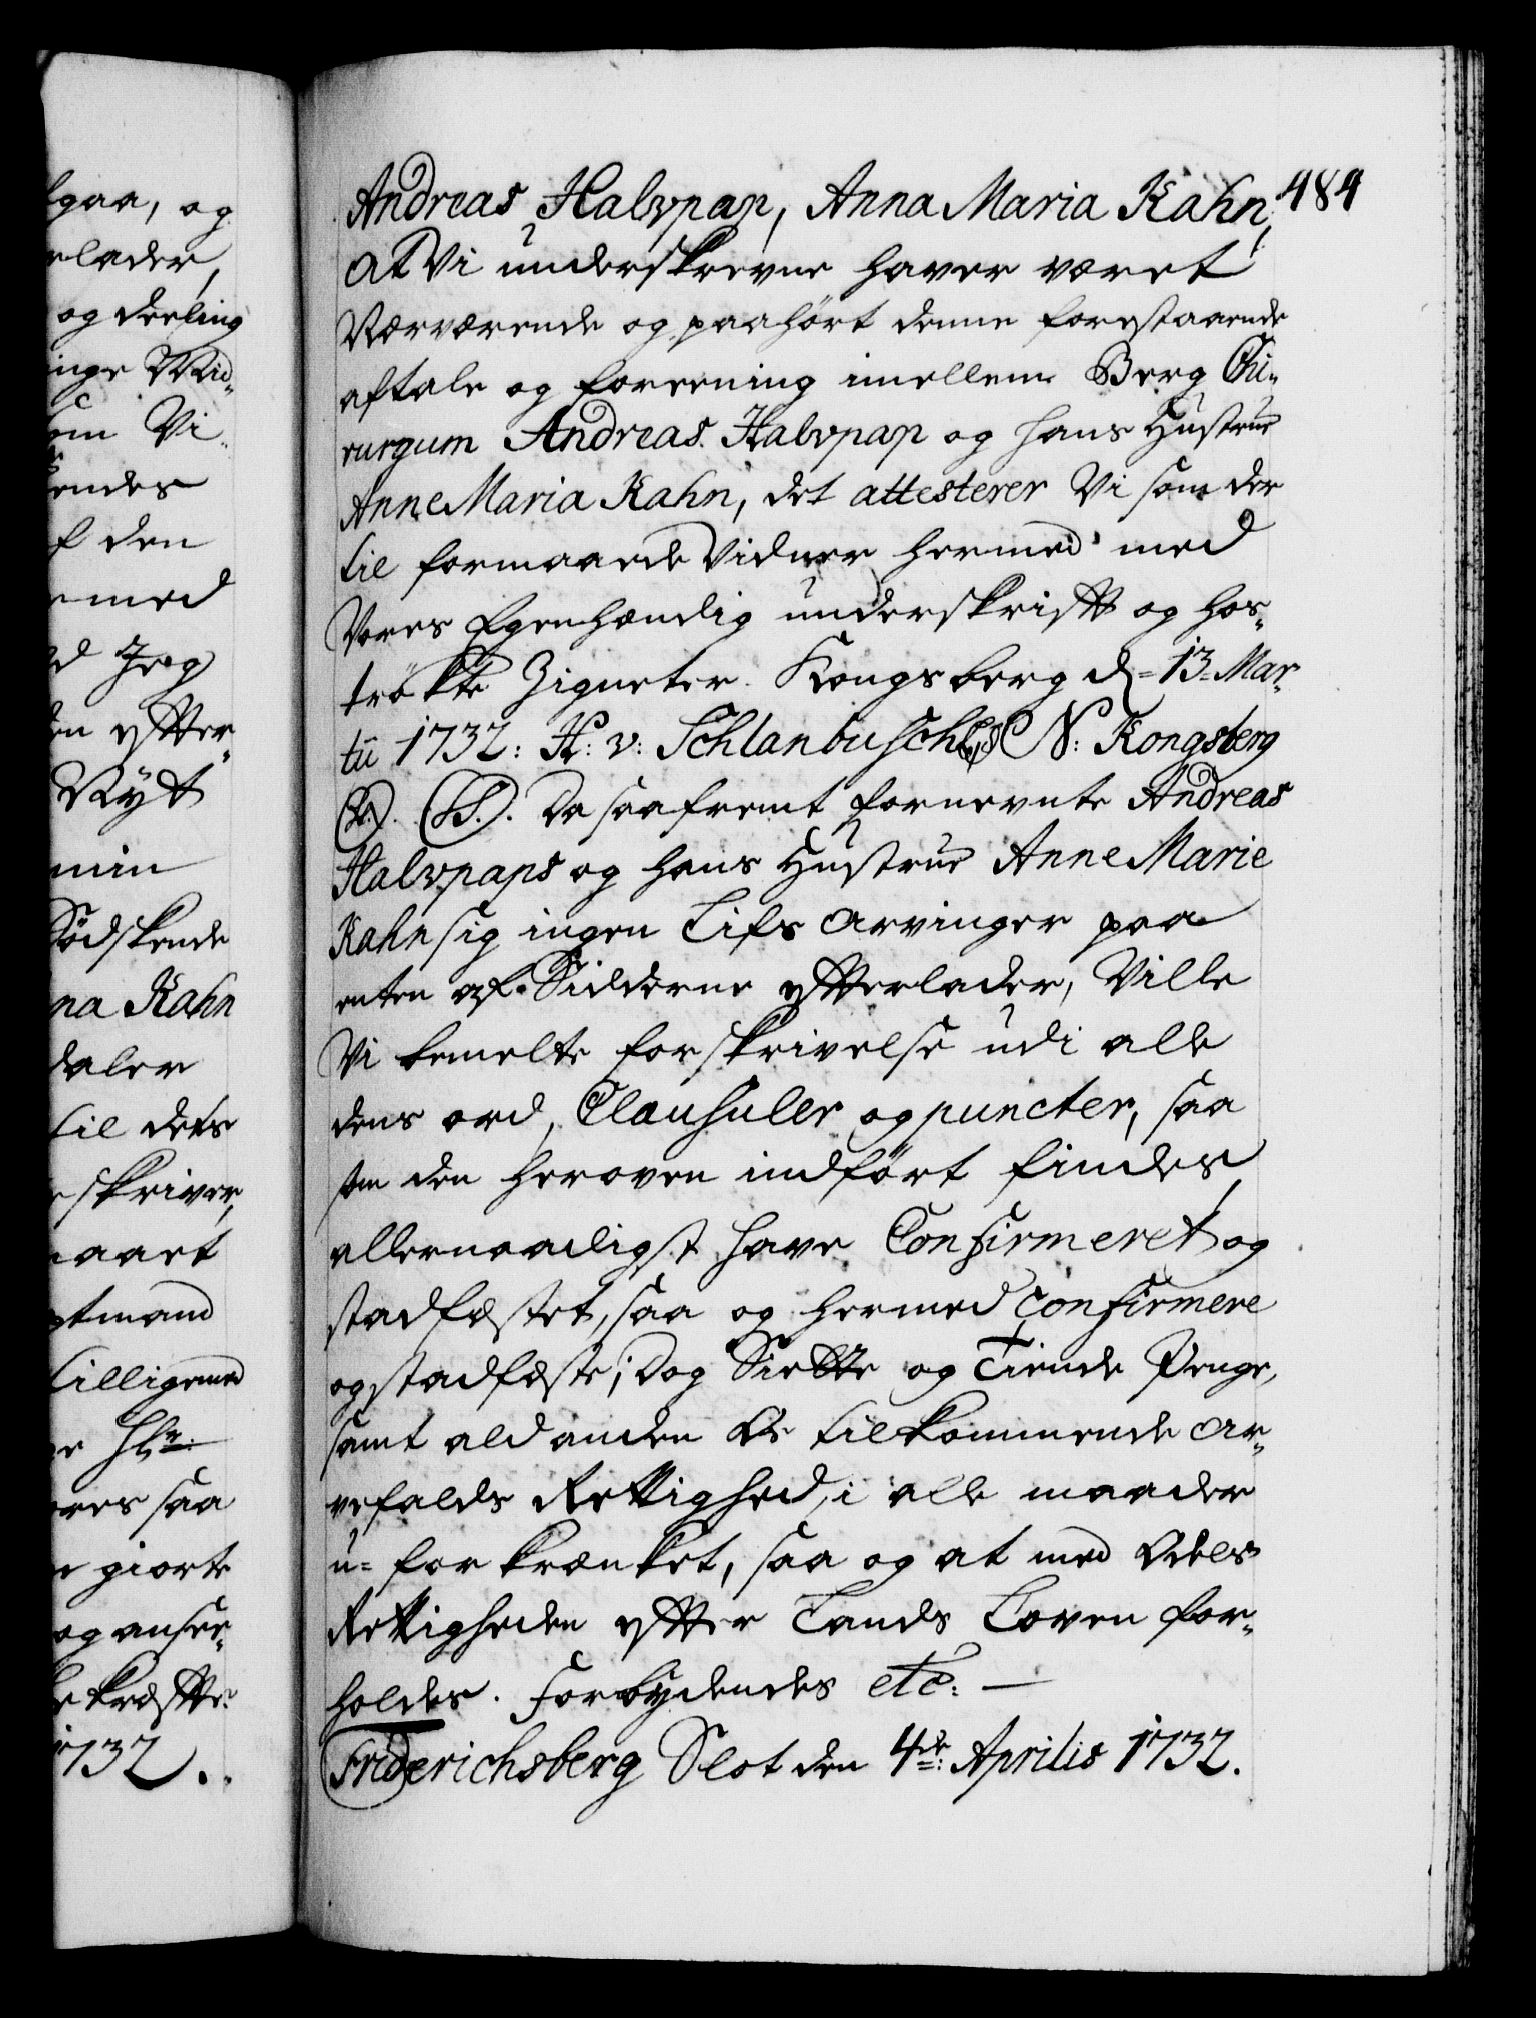 gaa, og
rlader,
og deeling
inge Mid-
om Vi
endes
f den
med
d Jeg
en efter
Nyt
min
Södskende
na Kahn
daler
til dets
skriver,
aaet
tmand
tilligemed
res saa
giorte
og ansee-
bekræffte
1732.
484
Andreas Halvpap, Anna Maria Kahn,
At Vi underskrevne haver været
Nærværende og paahört denne forestaaende
aftale og foreening imellem Berg Chi-
rurgum Andreas Halvpap og hans Hustrue
Anne Maria Kahn, det attesterer Vi som der
til formaaede Vidner hermed med
Vores Egenhændig underskrifft og hos-
trökte Zigneter. Kongsberg d. 13. Mar-
tii 1732: H: v: Schlanbusch N: Kongsberg
(LS.). (LS.). Da saafremt fornevnte Andreas
Halvpaps og hans Hustrue Anne Marie
Kahn sig ingen Lifs Arvinger paa
enten af Sidderne efterlader, Ville
Vi bemelte forskrivelse udi alle
dens ord, Clausuler og puncter, saa
som den heroven indfört findes,
allernaadigst have Confirmeret og
stadfæstet, saa og hermed Confirmere
og stadfæste; Dog Siette og Tiende Penge,
samt ald anden Os tilkommende Ar-
vefalds Rettighed, i alle maader
u-forkrænket, saa og at med Odels
Rettigheden efter Lands Loven for-
holdes. Forbydendes etc: —
Friderichsberg Slot den 4de: Aprilis 1732.